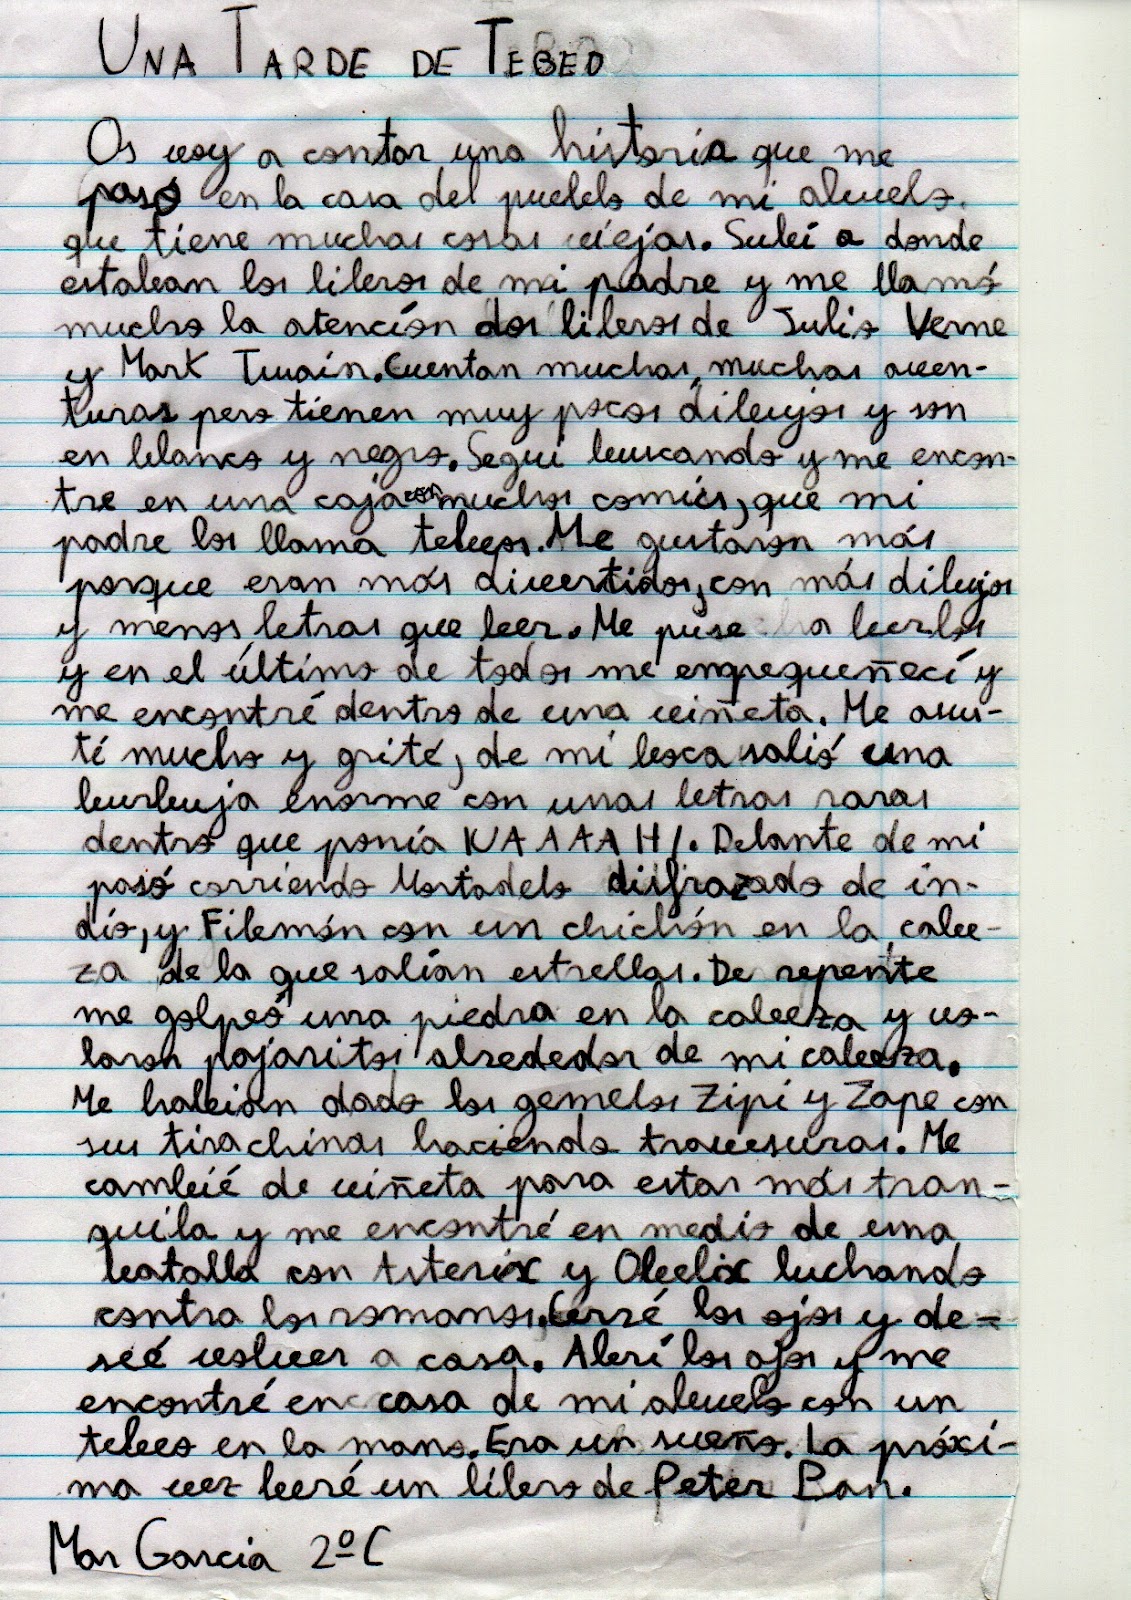 UNA TARDE DE TEBEO
Os voy a contar una historia que me
pasó en la casa del pueblo de mi abuelo,
que tiene muchas cosas viejas. Subí a donde
estaban los libros de mi padre y me llamó
mucho la atención dos libros de Julio Verne
y Mark Twain. Cuentan muchas, muchas aven-
turas pero tienen muy pocos dibujos y son
en blanco y negro. Seguí buscando y me encon-
tre en una caja con muchos comics, que mi
padre los llama tebeos. Me gustaron más
porque eran más divertidos, con más dibujos
y menos letras que leer. Me puse a leerlos
y en el último de todos me enpequeñecí y
me encontré dentro de una viñeta. Me asus-
té mucho y grité, de mi boca salió una
burbuja enorme con unas letras raras
dentro que ponía ¡UAAAAH!. Delante de mi
pasó corriendo Mortadelo disfrazado de in-
dio, y Filemón con un chichón en la cabe-
za de la que salían estrellas. De repente
me golpeó una piedra en la cabeza y vo-
laron pajaritos alrededor de mi cabeza.
Me habían dado los gemelos Zipi y Zape con
sus tirachinas haciendo travesuras. Me
cambié de viñeta para estar más tran-
quila y me encontré en medio de una
batalla con Asterix y Obelix luchando
contra los romanos. Cerré los ojos y de-
seé volver a casa. Abrí los ojos y me
encontré en casa de mi abuelo con un
tebeo en la mano. Era un sueño. La próxi-
ma vez leeré un libro de Peter Pan.
Mar Garcia 2ºC